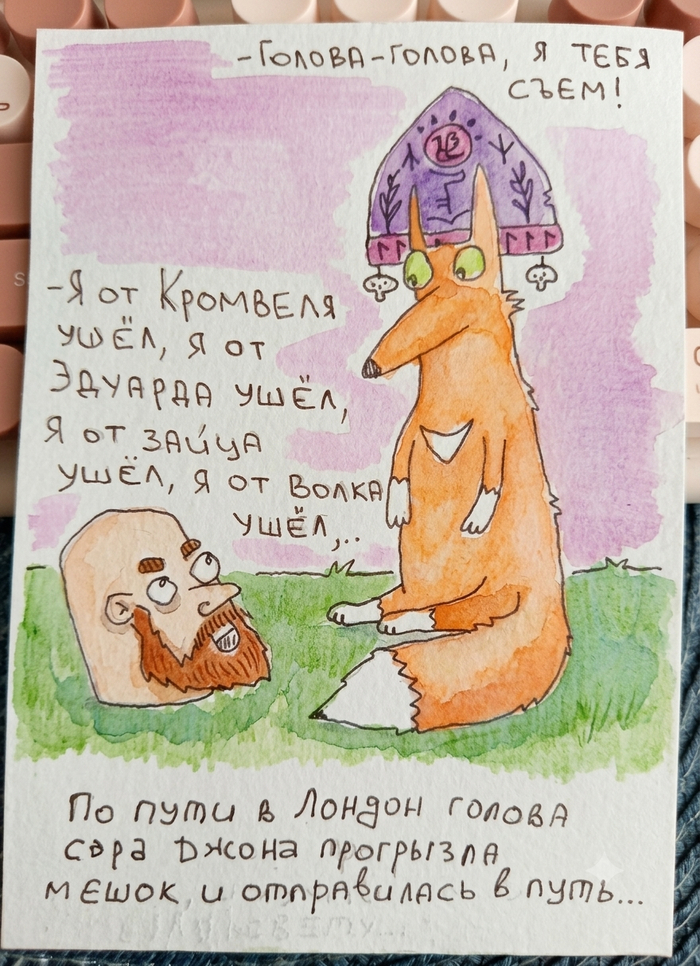 -Голова-голова, я тебя
съем!
-Я от Кромвеля
ушёл, я от
Эдуарда ушёл,
я от зайца
ушёл, я от волка
ушёл,..
По пути в Лондон голова
сэра Джона прогрызла
мешок и отправилась в путь...